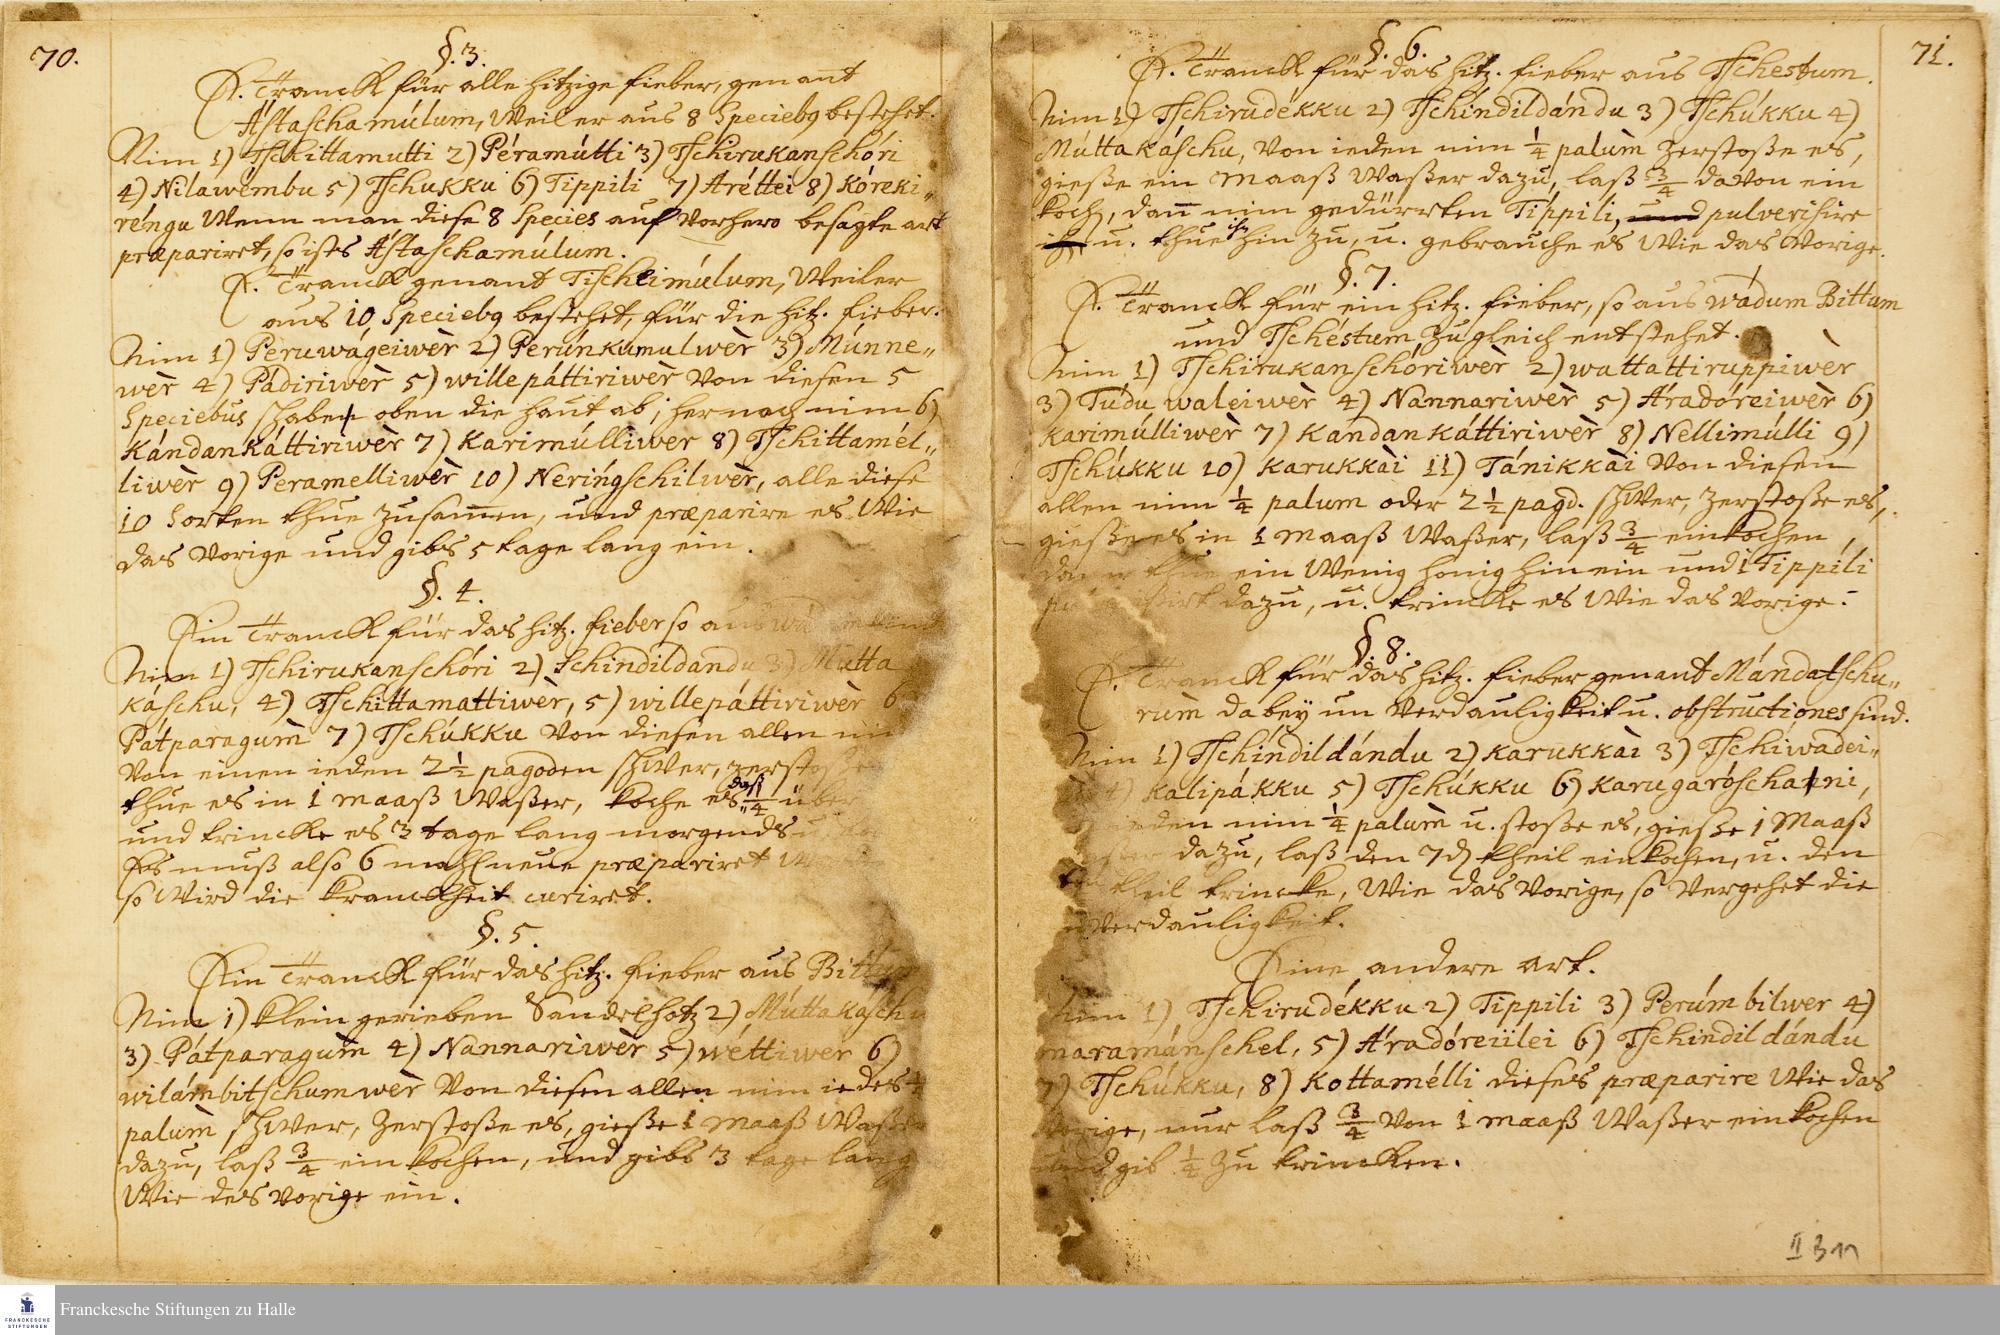 70.
§. 3.
E. Tranck für alle hitzige fieber, genant
Ástaschamúlum, weil er aus 8 Speciebg bestehet.
Nim 1) Tschittamutti 2) Péramútti 3) Tschirukanschóri
4) Nilawémbu 5) Tschukku 6) Tippili 7) Aréttei 8) Kóreki„
réngu Wenn man diese 8 Species auf vorhero besagte art
præpariret, so ists Ástaschamúlum.
E. Tranck genant Tischeimúlum, weil er
aus 10 Speciebg bestehet, für die hitz. fieber.
Nim 1) Peruwágeiwèr 2) Perúnkumulwèr 3) Múnne„
wèr 4) Pádiriwèr 5) willepáttiriwèr von diesen 5
Speciebus schabet oben die haut ab, hernach nim 6)
Kándankáttiriwèr 7) Karimúlliwer 8) Tschittamél„
liwèr 9) Peramelliwèr 10) Neríngschilwèr, alle diese
10 Sorten thue zusam̄en, und præparire es wie
das vorige und gibs 5 tage lang ein.
§. 4.
Ein Tranck für das hitz. fieber so aus
Nim 1) Tschirukanschóri 2) Schindildandu 3) Mútta
káschu, 4) Tschittamattiwèr, 5) willepáttiriwèr 6
Pátparagum̀ 7) Tschúkku von diesen allen
von einen ieden 2½ pagoden schwer, zerstoße
thue es in 1 maaß waßer, koche es, daß ¼ über
und trincke es 3 tage lang morgends
Es muß also 6 mahl neue præpariret
so wird die kranckheit curiret.
§. 5.
Ein Tranck für das hitz. fieber aus
Nim 1) klein gerieben Sandelholtz 2) Múttakáschu
3) Pátparagum̀ 4) Nannariwèr 5) wéttiwer 6)
wilámbitschumwèr von diesen allen nim iedes ¼
palum̀ schwer, zerstoße es, gieße 1 maaß waßer
dazu, laß ¾ ein kochen, und gibs 3 tage lang
wie das vorige ein.
71.
§. 6.
E. Tranck für das hitz. fieber aus Tschestum.
Nim 1) Tschirudékku 2) Tschíndildándu 3) Tschúkku 4)
Múttakáschu, von ieden nim ¼ palum̀ zerstoße es,
gieße ein maaß waßer dazu, laß ¾ davon ein
koch, dan̄ nim gedürrten Típpili, und pulverisire
u. thue ihn hin zu, u. gebrauche es wie das vorige.
§. 7.
E. Tranck für ein hitz. fieber, so aus wádum Bittum
und Tschéstum zugleich entstehet.
Nim 1) Tschirukanschóriwèr 2) wattattiruppiwèr
3) Túdu waleiwèr 4) Nannariwèr 5) Áradóreiwèr 6)
Karimúlliwèr 7) Kandankáttiriwèr 8) Nellimúlli 9)
Tschúkku 10) Karukkài 11) Tánikkài von diesen
allen nim ¼ palum oder 2½ pagd. schwer, zerstoße es,
gieße es in 1 maaß waßer, laß ¾ einkochen,
ein wenig honig hin ein und 1 Tippíli
dazu, u. trincke es wie das vorige.
§. 8.
E. Tranck für das hitz. fieber genant Mándatschu„
rum̀ dabey un verdauligkeit u. obstructiones sind.
Nim 1) Tschíndildándu 2) Karukkài 3) Tschiwadei„
4) Kalipákku 5) Tschúkku 6) Karugaróschani,
nim ¼ palum̀ u. stoße es, gieße 1 Maaß
dazu, laß den 7d theil einkochen, u. den
theil trincke, wie das vorige, so vergehet die
unverdauligkeit.
Eine andere art.
Nim 1) Tschirudékku 2) Tippili 3) Perúmbilwer 4)
maramánschel, 5) Áradóreiilei 6) Tschindildándu
7) Tschúkku, 8) Kottamélli dieses præparire wie das
vorige, nur laß ¾ von 1 maaß waßer einkochen
und gib ¼ zu trincken.
Franckesche Stiftungen zu Halle
FRANCKESCHE
STIFTUNGEN